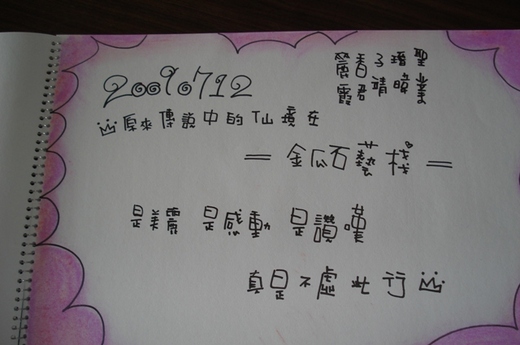 20090712
麗香子聖
霞君靖暐業
原來傳說中的仙境在
= 金瓜石藝棧 =
是美麗 是感動 是讚嘆
真是不虛此行